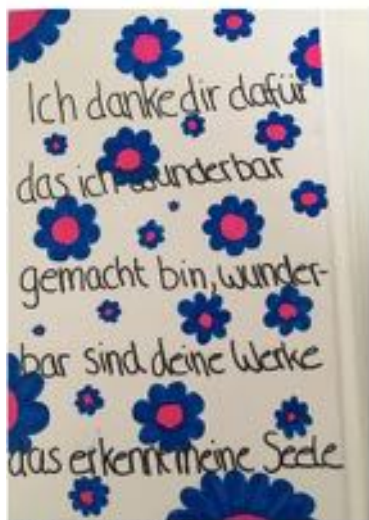 Ich danke dir dafür
das ich wunderbar
gemacht bin, wunder-
bar sind deine Werke
das erkennt meine Seele